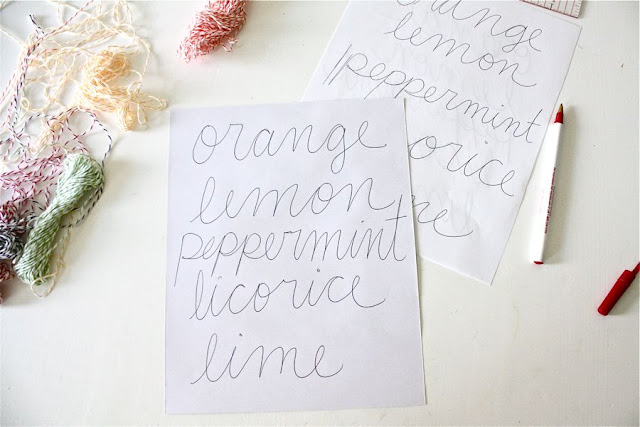 orange
lemon
peppermint
licorice
lime
orange
lemon
peppermint
orice
me